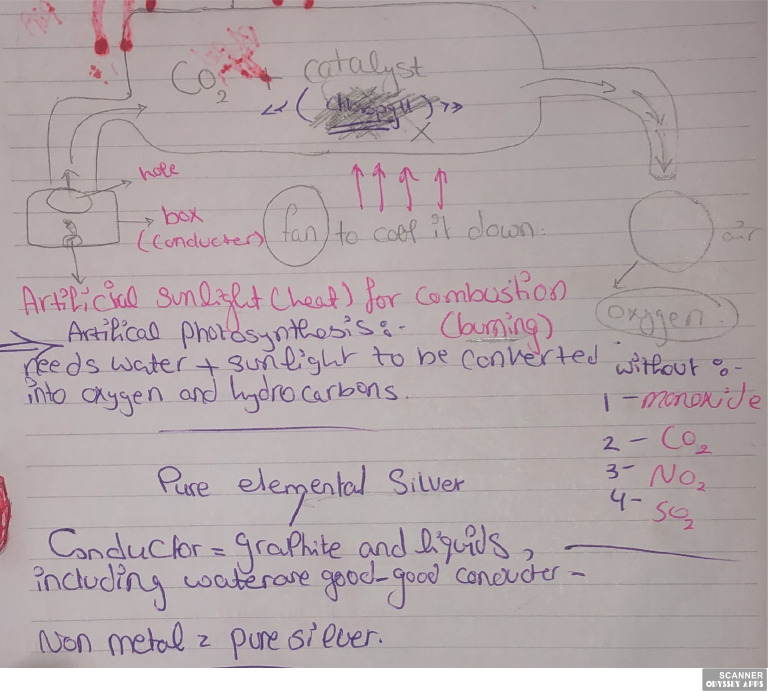 CO2 + catalyst
hole
box
(Conducter)
fan to cool it down.
air
Artificial Sunlight (heat) for Combustion
(burning)
oxygen
Artifical photosynthesis:-
needs water + sunlight to be converted
into oxygen and hydrocarbons.
without :-
1 - monoxide
2 - CO2
3- NO2
4- SO2
Pure elemental Silver
Conductor = graphite and liquids,
including water are good-good conducter -
Non metal = pure silver.
SCANNER
ODYSSEY APPS